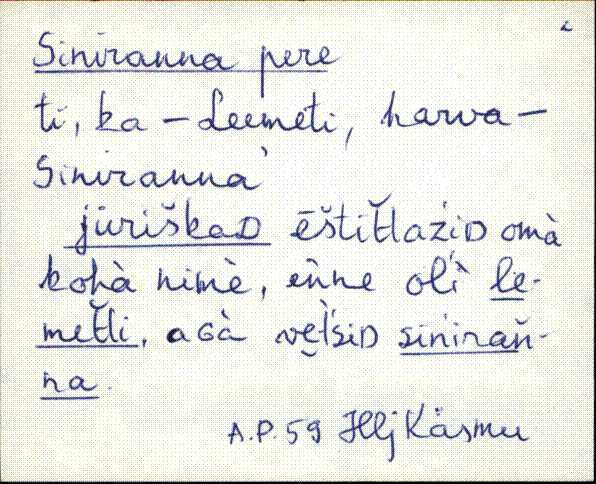 Siniranna pere
ti, ka - Leemeti, harva -
Siniranna
jüriškaD ēštit̆lažiD omà
kohà nimè, eǹne olì le-
met̆li, aGà vęt̆siD sinirañ-
na.
A.P. 59 Hlj Käsmu